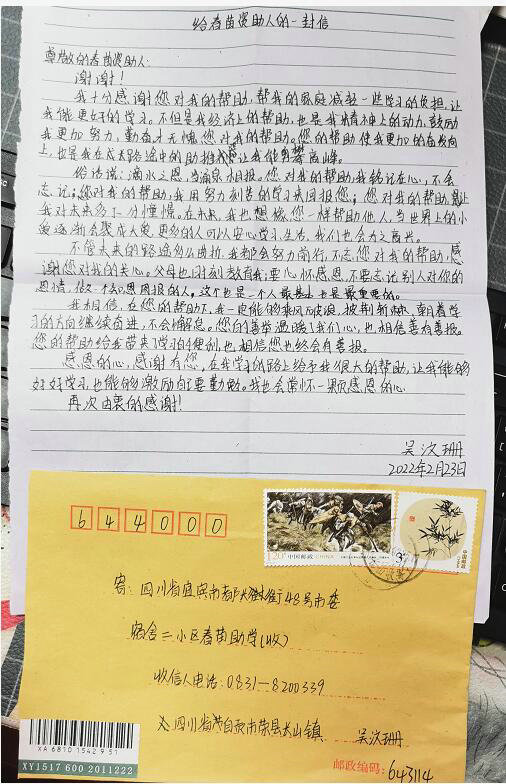 给春苗资助人的一封信
尊敬的春苗资助人:
谢谢!
我十分感谢您对我的帮助,帮我的家庭减轻一些学习的负担,让
我能更好的学习。不但是我经济上的帮助,也是我精神上的动力,鼓励
我更加努力,勤奋才无愧您对我的帮助。您的帮助使我更加的奋发向
上,也是我在成长路途中的助推让我能勇攀高峰。
俗话说:滴水之恩,当涌泉相报。您对我的帮助,我铭记在心,不会
忘记;您对我的帮助,我用努力刻苦的学习来回报您;您对我的帮助,让
我对未来多了一分憧憬。在未来,我也想像您一样帮助他人,当世界上的小
爱逐渐会聚成大爱,更多的人可以安心学习、生活,我们也会为之高兴。
不管未来的路途多么曲折,我都会努力前行,不忘您对我的帮助,感
谢您对我的关心。父母也时刻教育我:要心怀感恩,不要忘记别人对你的
恩情,做一个知恩图报的人,这个也是一个人最基本也是最重要的。
我相信,在您的帮助下,我一定能够乘风破浪,披荆斩棘,朝着学
习的大方向继续奋进,不会懈怠。您的善举温暖了我们心,也相信善有善报。
您的帮助给我带来了学习的便利,也相信您也终会有善报。
感恩的心,感谢有您,在我学习的路上给予我很大的帮助,让我能够
好好学习,也能够激励自己要勤勉。我也会常怀一颗感恩的心。
再次由衷的感谢!
吴汶珊
2022年2月23日
644000
1.20元 中国邮政 CHINA
中国邮政
寄:四川省宜宾市都长街48号市委
宿舍二小区春苗助学(收)
收信人电话:0831-8200339
四川省自贡市荣县长山镇 吴汶珊
邮政编码:643114
XA 6810 1542 9 51
XY1517 600 2011222